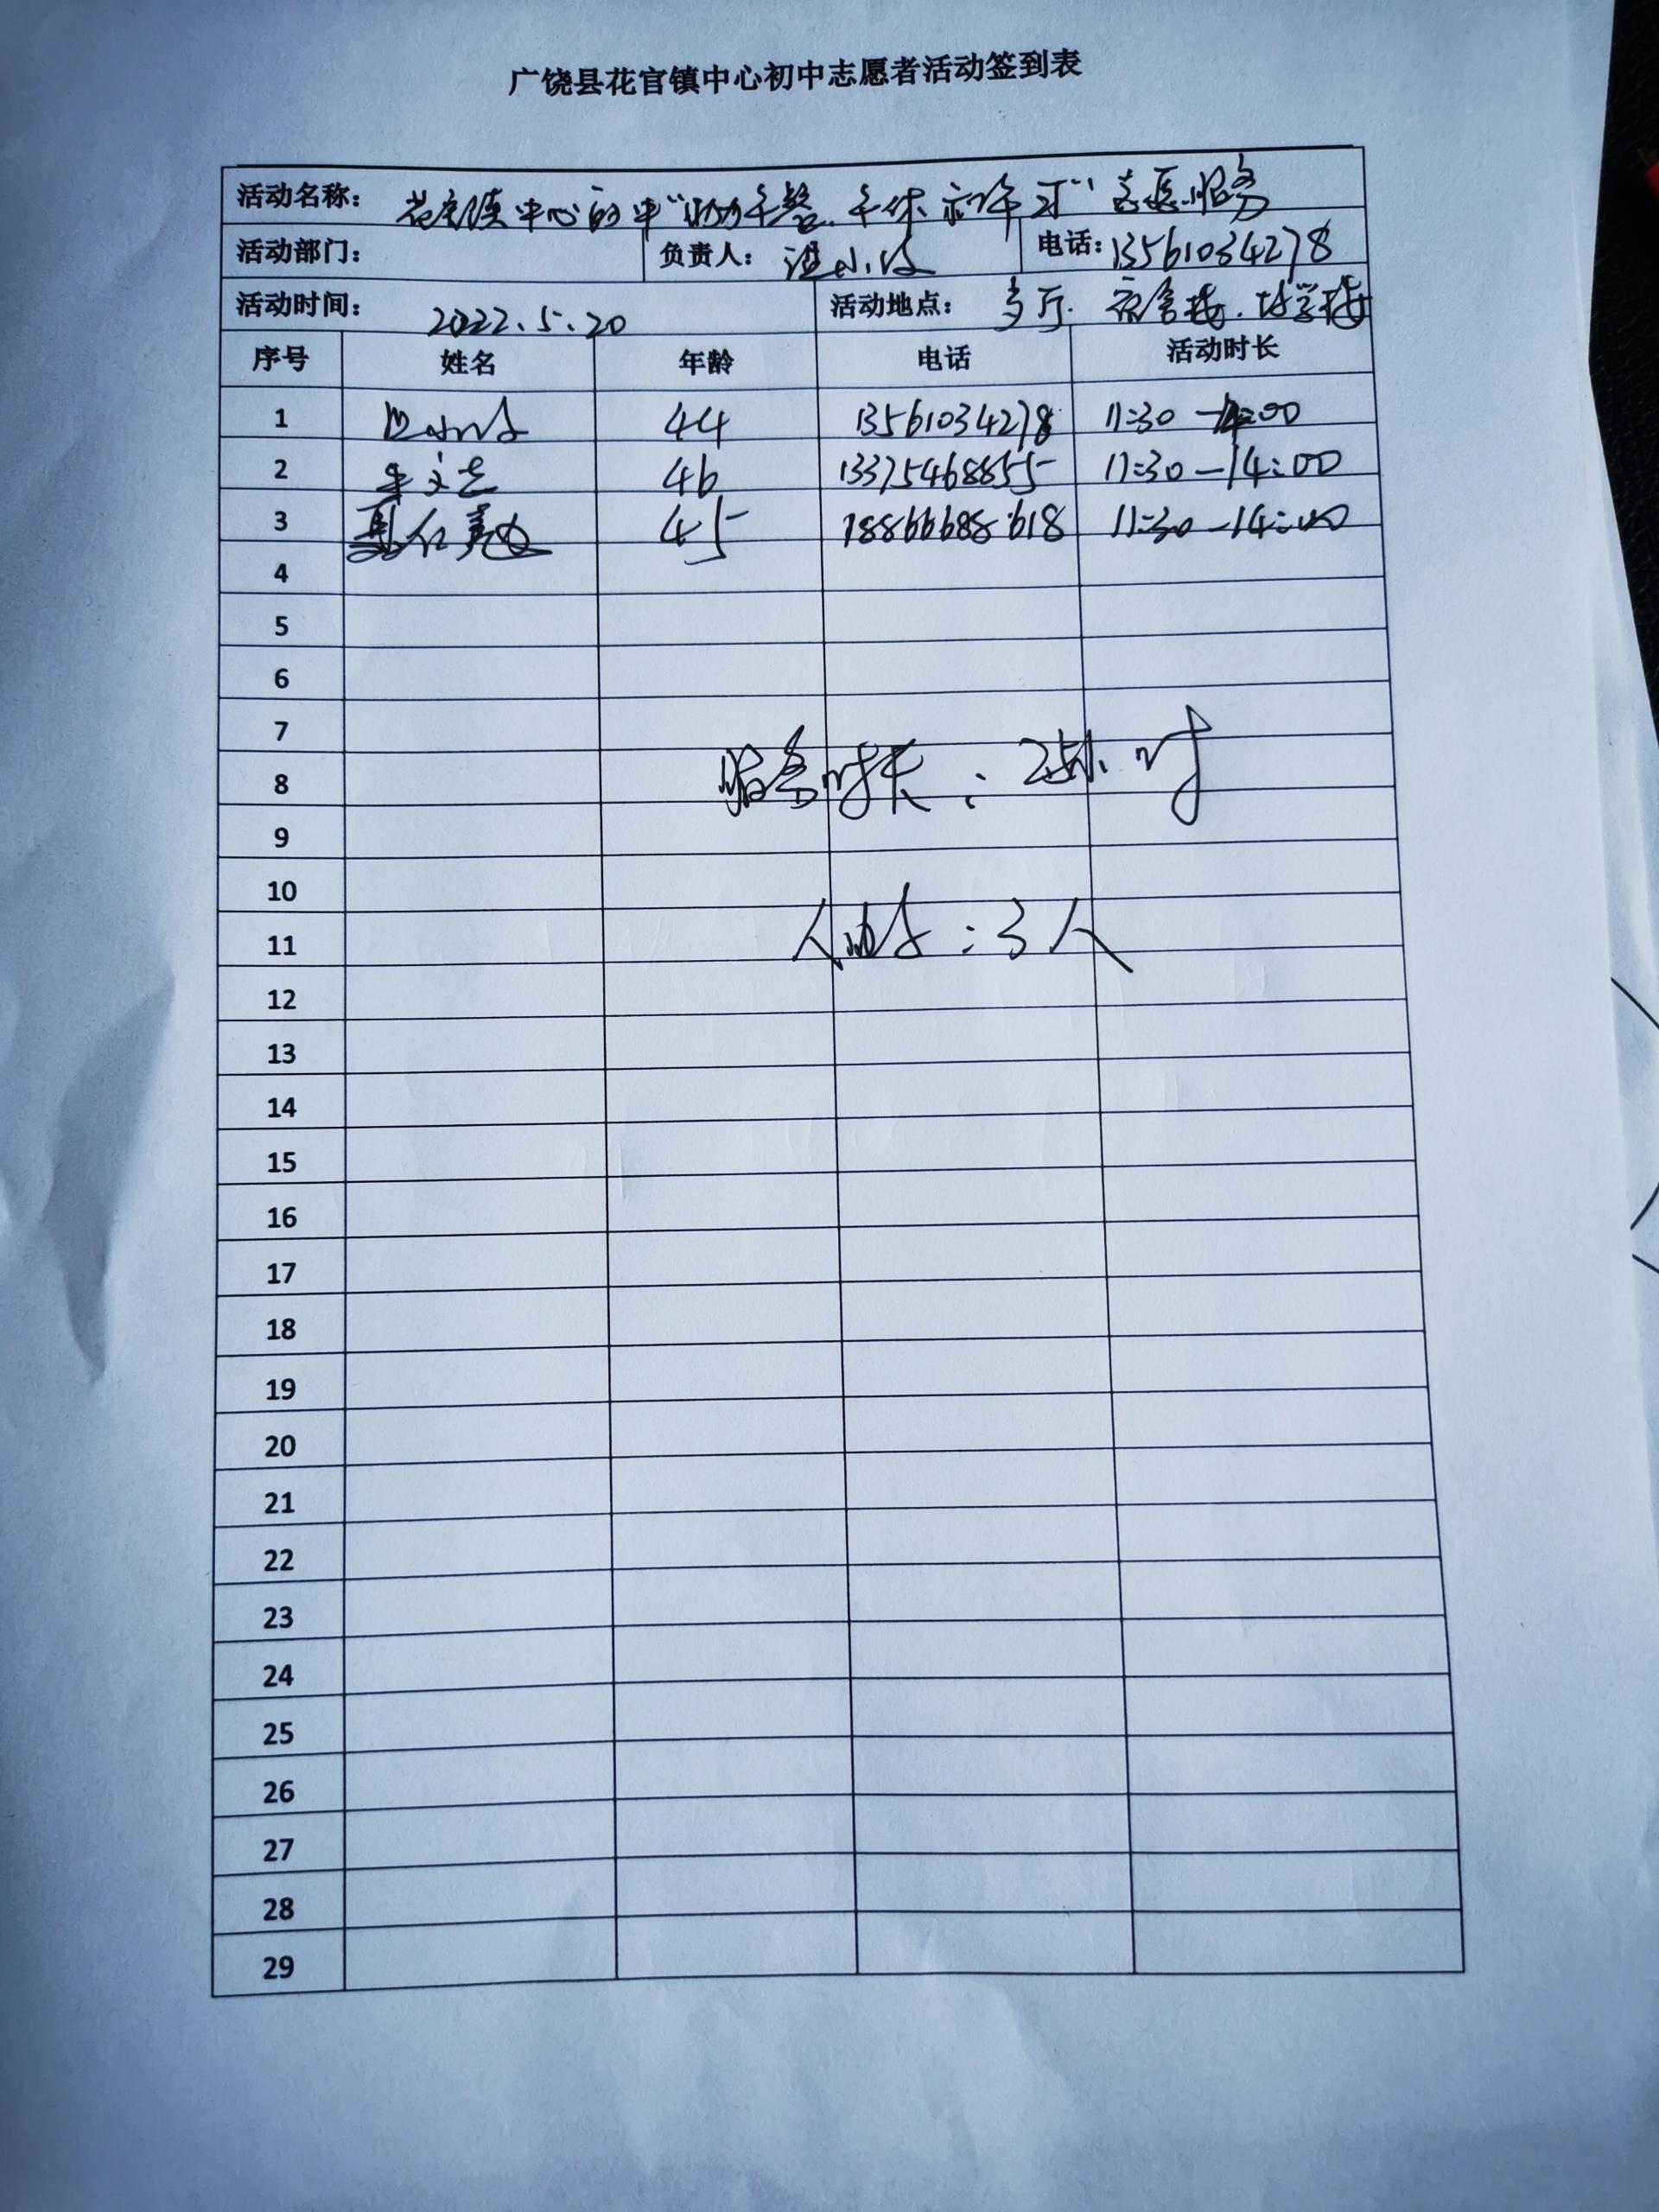 广饶县花官镇中心初中志愿者活动签到表
活动名称： 花官镇中心初中“助力午餐、午休 志愿服务
活动部门： 负责人： 电话：13561034278
活动时间： 2022.5.20 活动地点： 宿舍楼.
序号 姓名 年龄 电话 活动时长
1 44 13561034278 11:30—14:00
2 46 13375468855 11:30—14:00
3 45 18866688618 11:30—14:00
4
5
6
7
服务时长：2.5小时
8
9
10
人数：3人
11
12
13
14
15
16
17
18
19
20
21
22
23
24
25
26
27
28
29